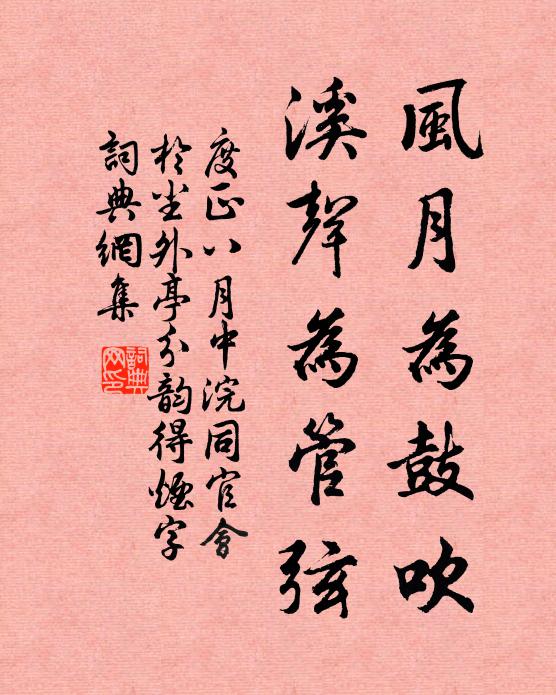 風月為鼓吹
溪聲為管弦
度正八月中浣同官會
於坐外亭分韵得煙字
詞典網集
詞典網印